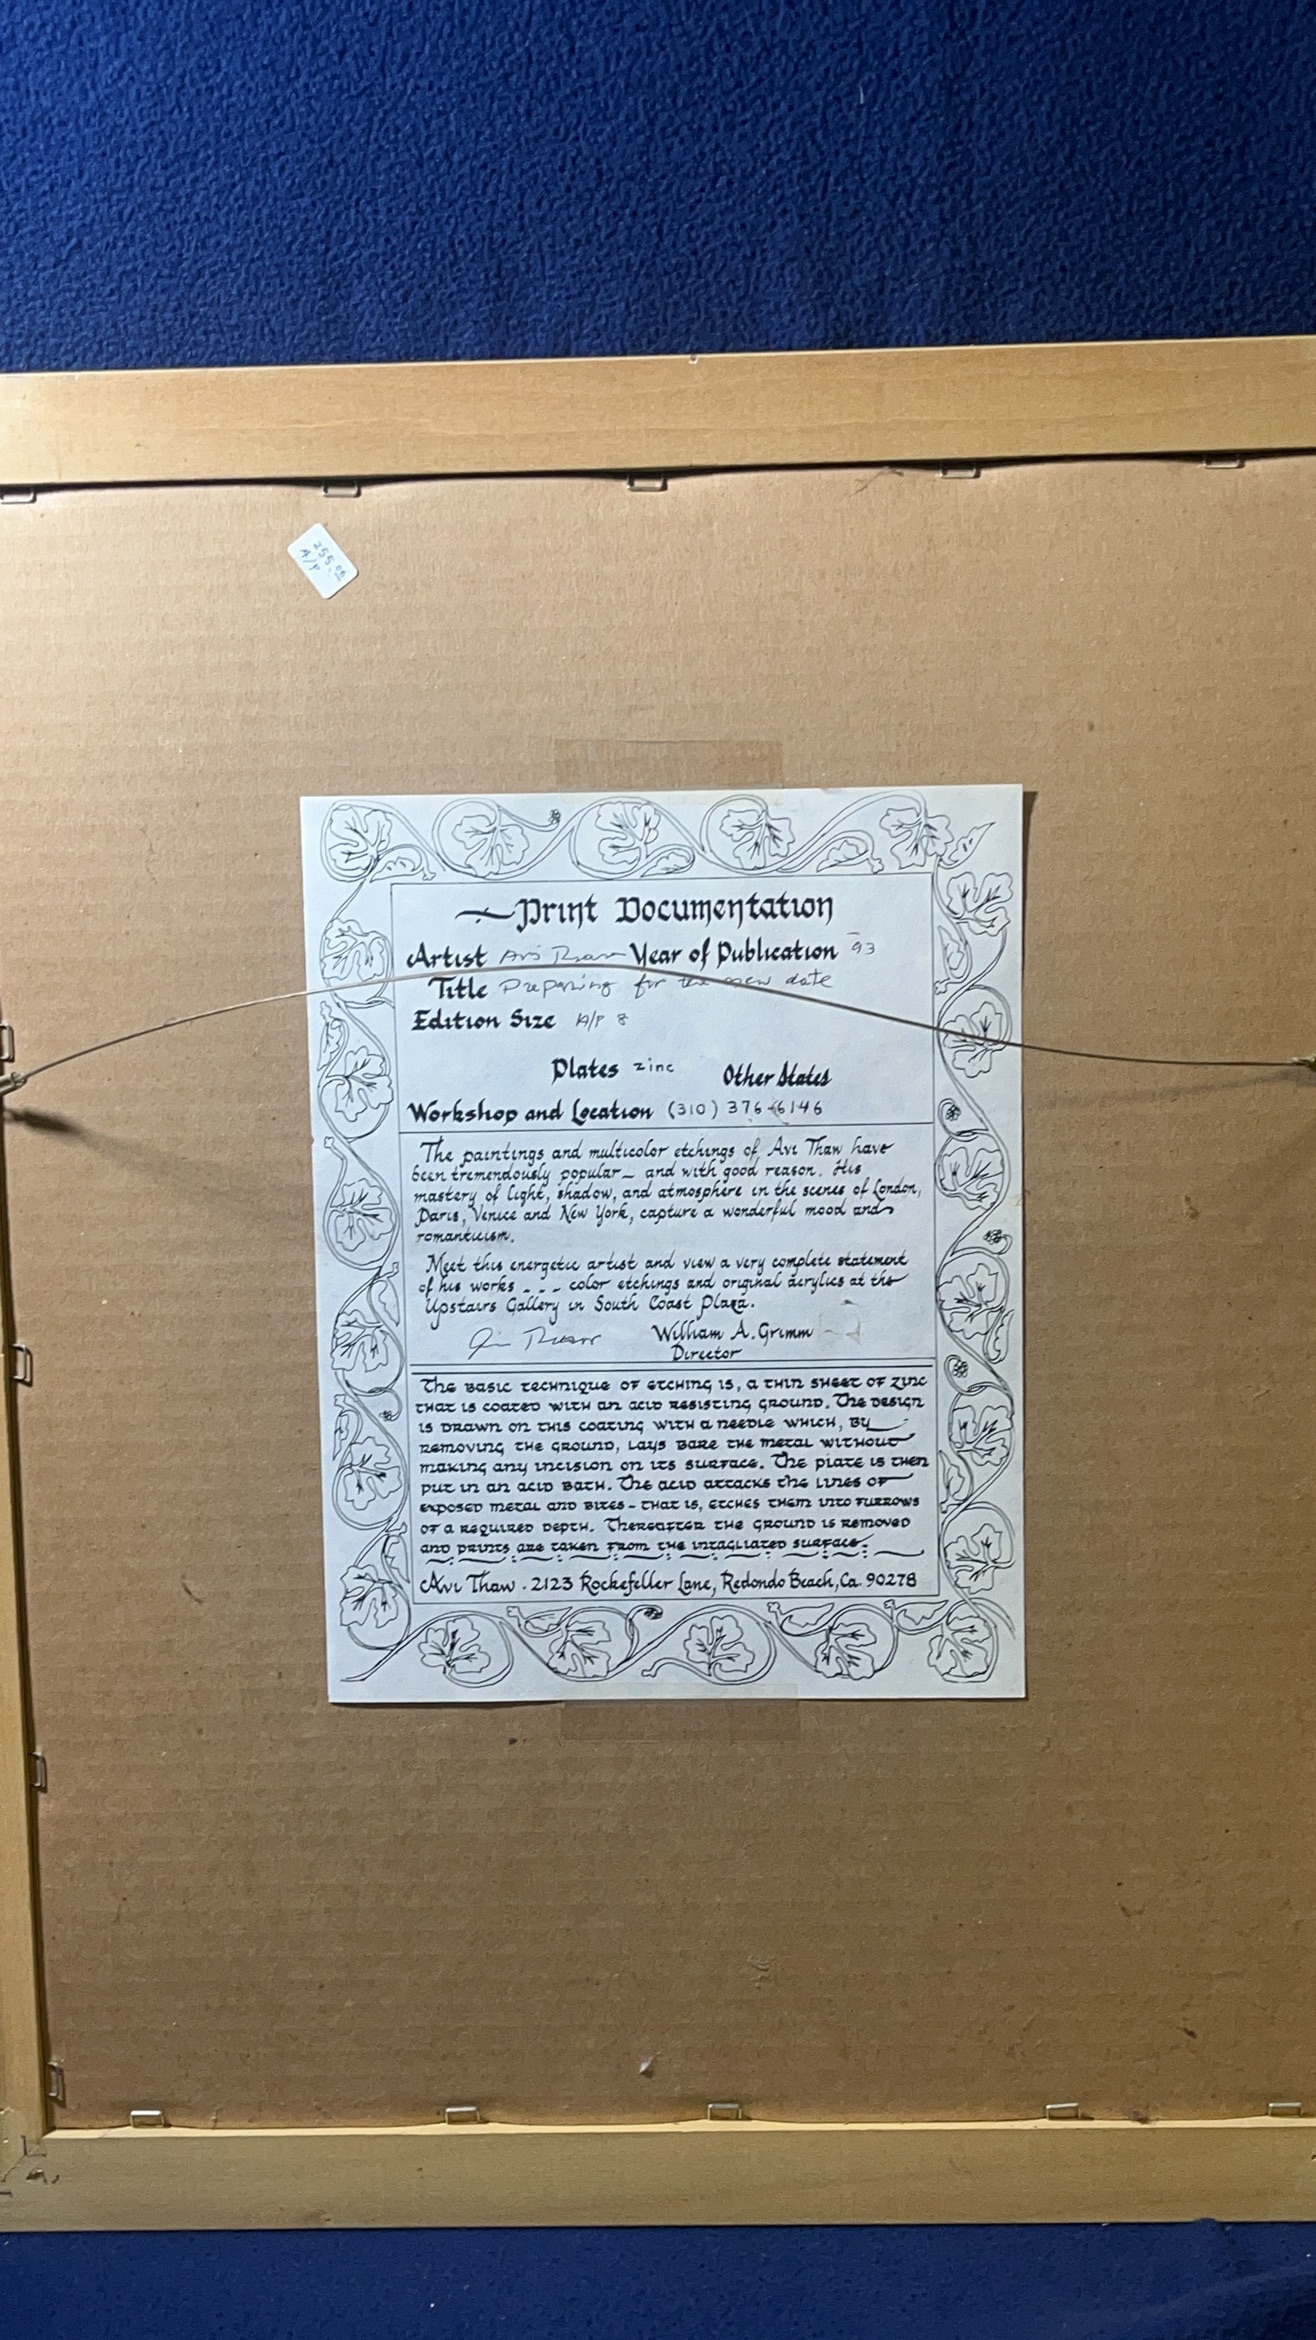 255.00
A/P
Print Documentation
Artist Avi Thaw Year of Publication '93
Title Preparing for the new date
Edition Size A/P 8
Plates zinc Other States
Workshop and Location (310) 376-6146
The paintings and multicolor etchings of Avi Thaw have
been tremendously popular – and with good reason. His
mastery of light, shadow, and atmosphere in the scenes of London,
Paris, Venice and New York, capture a wonderful mood and
romanticism.
Meet this energetic artist and view a very complete statement
of his works - - - color etchings and original acrylics at the
Upstairs Gallery in South Coast Plaza.
William A. Grimm
Director
The basic technique of etching is, a thin sheet of zinc
that is coated with an acid resisting ground. The design
is drawn on this coating with a needle which, by
removing the ground, lays bare the metal without
making any incision on its surface. The plate is then
put in an acid bath. The acid attacks the lines of
exposed metal and bites – that is, etches them into furrows
of a required depth. Thereafter the ground is removed
and prints are taken from the intagliated surface.
Avi Thaw · 2123 Rockefeller Lane, Redondo Beach, Ca. 90278